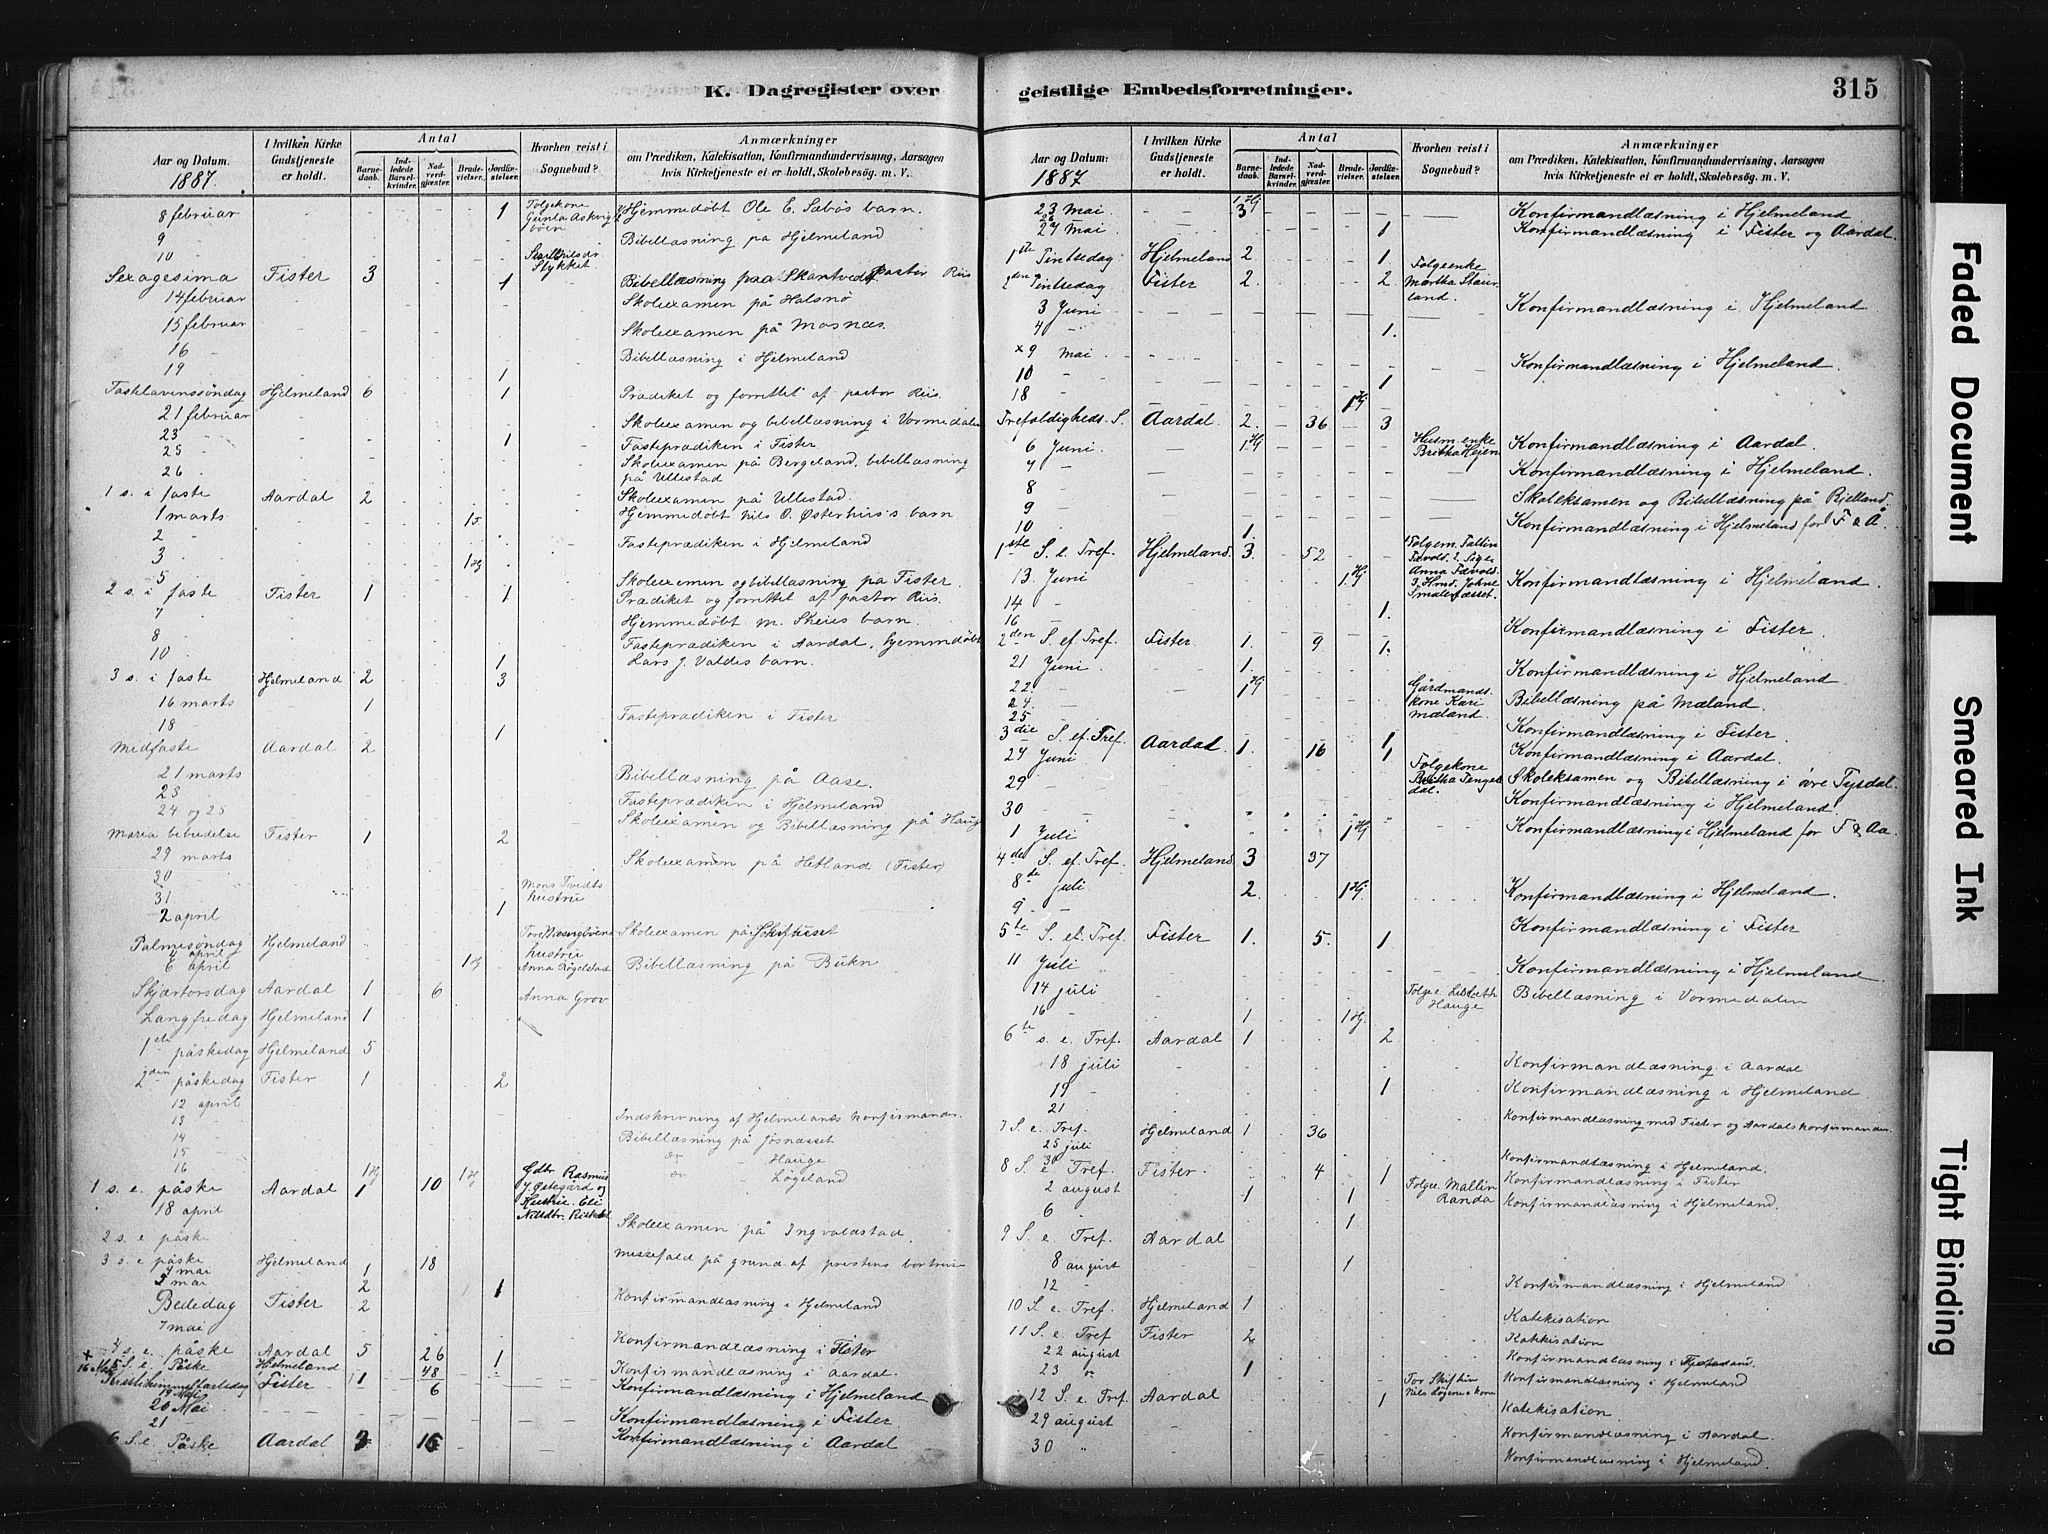 K. Dagregister over
Aar og Datum. 1887.
I hvilken Kirke Gudstjeneste er holdt.
Antal
Barnedaab. Indledede Barselkvinder. Nadverdgjæster. Brudevielser. Jordfæstelser.
Hvorhen reist i Sognebud?
Anmærkninger
om Prædiken, Katekisation, Konfirmandundervisning, Aarsagen
hvis Kirketjeneste ei er holdt, Skolebesøg. m. V.
8 februar 1 Følgekone Hjemmedøbt Ole E. Sæbøs barn.
9 Bibellæsning på Hjelmeland
10 Stykket
Sexagesima Fister 3 1 Bibellæsning paa Skartvedt. Pastor Riis
14 februar Skoleexamen på Halsnø
15 februar Skoleexamen på Mosnæs.
16 Bibellæsning i Hjelmeland
19 1
Fastelavenssöndag Hjelmeland 6 1 Prædiket og forrettet af pastor Riis.
21 februar Skoleexamen og bibellæsning i Vormedalen
23 1 Fasteprædiken i Fister
25 Skoleexamen på Bergeland, bibellæsning
på Ullestad
26 Skoleexamen på Ullestad.
1 s. i faste Aardal 2
1 marts Hjemmedøbt Nils O. Østerhus's barn
2 Fasteprædiken i Hjelmeland
3
5 1 Hj Skoleexamen og bibellæsning på Fister.
2 s. i faste Fister 1 1 Prædiket og forrettet af pastor Riis.
7 Hjemmedøbt M. Skeies barn.
8 Fasteprædiken i Aardal, hjemmedöbt
10 1 Lars J. Valdes barn.
3 s. i faste Hjelmeland 2 3
16 marts 1 Fasteprædiken i Fister
18 1
Midfaste Aardal 2
21 marts Bibellæsning på Aase.
23 Fasteprædiken i Hjelmeland
24 og 25 Skoleexamen og Bibellæsning på Hauge
Maria bebudelse Fister 1 2
29 marts Skoleexamen på Hetland (Fister)
30
31 Mons Tvedts hustru
2 april 1
Palmesöndag Hjelmeland hustru Skoleexamen på Skiftuset
4 april
6 april 1 Hj Anna Løgelstad Bibellæsning på Bukn
Skjærtorsdag Aardal 1 6 Anna Grov
Langfredag Hjelmeland 1
1ste påskedag Hjelmeland 5
2den påskedag Fister 1 2
12 april Indskrivning af Hjelmelands konfirmander.
13 Bibellæsning på Jösnæsset
14 do - Hauge
15 do - Løgeland
16 1 Hj 1 Hj Gdbr. Rasmus
1 s. e. påske Aardal 1 10 J. Østegård og
18 april Hustru Eli
Skoleexamen på Ingvaldstad
2 s. e. påske Messefald på grund af prestens bortreise
3 s. e påske Hjelmeland 1 18
4 mai
5 mai 2 1
Bededag Fister 2 Konfirmandlæsning i Hjelmeland
7 mai
4 s. e. påske Aardal 5 26 Konfirmandlæsning i Fister
+ 16 Mai 5 S. e. Påske Hjelmeland 48 1 Konfirmandlæsning i Aardal.
Kristi himmelfartsdag Fister 1 6 Konfirmandlæsning i Hjelmeland
19 Mai
20 Mai
21 Konfirmandlæsning i Fister.
6 S. e. Påske Aardal 16 Konfirmandlæsning i Aardal
geistlige Embedsforretninger. 315
Aar og Datum: 1887
I hvilken Kirke Gudstjeneste er holdt.
Antal
Barnedaab. Indledede Barselkvinder. Nadverdgjæster. Brudevielser. Jordfæstelser.
Hvorhen reist i Sognebud?
Anmærkninger
om Prædiken, Katekisation, Konfirmandundervisning, Aarsagen
hvis Kirketjeneste ei er holdt, Skolebesøg. m. V.
23 Mai 3 Konfirmandlæsning i Hjelmeland
26
27 Mai 1 Konfirmandlæsning i Fister og Aardal.
1ste Pintsedag Hjelmeland 2 1.
2den Pintsedag Fister 2. 2 Følgeenke Martha
3 Juni Konfirmandlæsning i Hjelmeland
4 1.
x 9 Mai Konfirmandlæsning i Hjelmeland.
10 1
18 1 Hj
Trefoldigheds. S. Aardal 2. 36 3
6 Juni 1 Hj Husm. enke Britha Højen Konfirmandlæsning i Aardal.
7 Konfirmandlæsning i Hjelmeland.
8 Skoleksamen og Bibellæsning på Rielland.
9 Konfirmandlæsning i Hjelmeland for F & Å.
10 1.
1ste S. e. Tref. Hjelmeland. 3. 52
13. Juni 1. Hj Konfirmandlæsning i Hjelmeland.
14 1.
16 Konfirmandlæsning i Fister.
2den S. ef. Tref. Fister 1. 9 1.
21 Juni 1. Konfirmandlæsning i Hjelmeland.
22. 1 Hj Gårdmands- Bibellæsning på Mæland.
24. kone Kari
25 Mæland. Konfirmandlæsning i Fister.
3die S. ef. Tref. Aardal 1. 16 1 Konfirmandlæsning i Aardal.
27 Juni 1 Følgekone
29 Britha Tengesdal. Skoleksamen og Bibellæsning i øvre Tysdal.
30 Konfirmandlæsning i Hjelmeland.
1 Juli 1 Hj Konfirmandlæsning i Hjelmeland for F & Aa.
4de S. ef. Tref. Hjelmeland 3 37
8de juli 2. 1 Hj. Konfirmandlæsning i Hjelmeland
9 Konfirmandlæsning i Fister
5te S. ef. Tref. Fister 1. 5. 1
11 Juli Konfirmandlæsning i Hjelmeland.
14 juli Følge e. Lisbeth Hauge Bibellæsning i Vormedalen
16 1 1 Hj.
6te s. e. Tref. Aardal 1 2
18 juli Konfirmandlæsning i Aardal
19 1 Konfirmandlæsning i Hjelmeland.
21 Konfirmandlæsning med Fister og Aardals konfirmander.
7 S. e. Tref. Hjelmeland 1 36
25 juli Konfirmandlæsning i Hjelmeland.
30
8 S. e Tref. Fister. 4 1 Konfirmandlæsning i Fister
2 august 1 1 Følge e. Mallin Randa Konfirmandlæsning i Hjelmeland.
6 1
9 S. e. Tref. Aardal
8 august 1
12 Konfirmandlæsning i Hjelmeland
10 S. e. Tref. Hjelmeland 1 Katekisation
11 S. e. Tref Fister 2 Katekisation
22 august Konfirmandlæsning i
23 do 1 Konfirmandlæsning i Hjelmeland
12 S. e. Tref Aardal 1 Katekisation.
29 august Konfirmandlæsning i Aardal.
30 Konfirmandlæsning i Hjelmeland.
Faded Document
Smeared Ink
Tight Binding